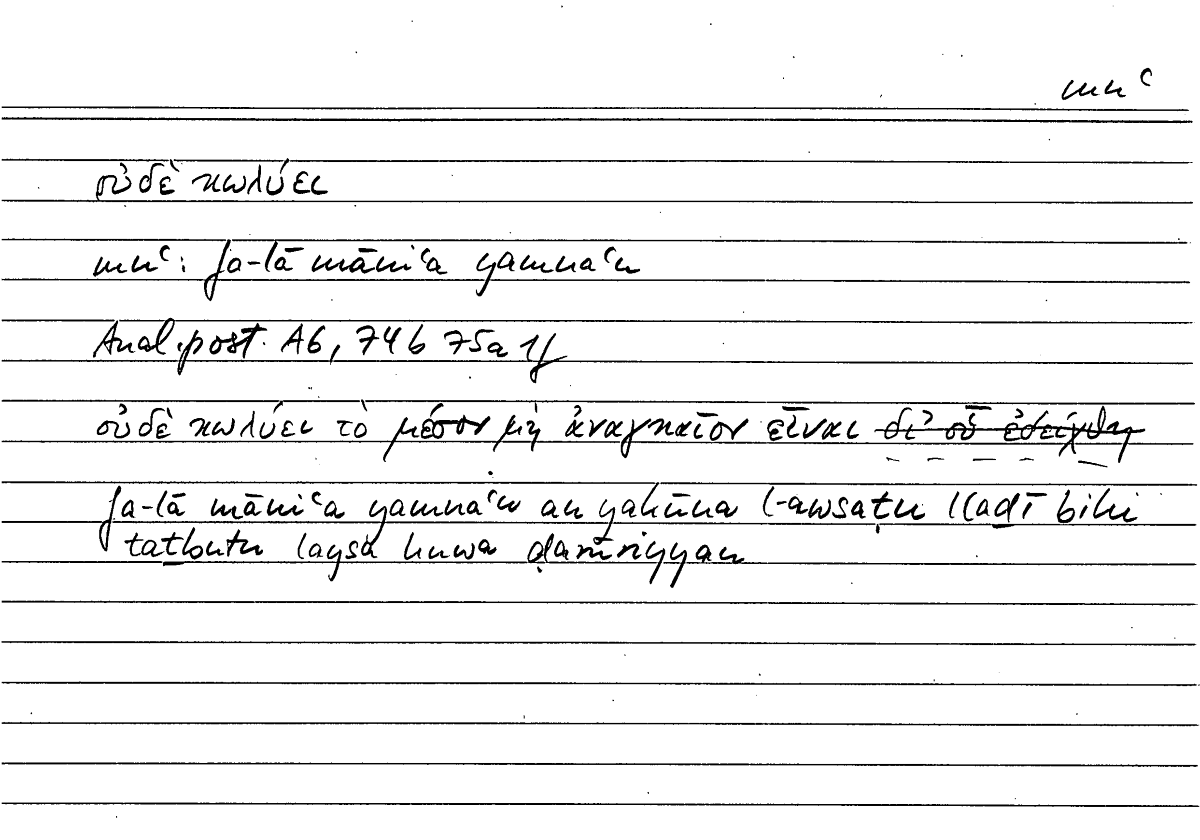 mnʿ
οὐδὲ κωλύει
mnʿ: fa-lā māniʿa yamnaʿu
Anal. post. A6, 74b 75a 1f
οὐδὲ κωλύει τὸ μέσον μὴ ἀναγκαῖον εἶναι δι’ οὗ ἐδείχθη
fa-lā māniʿa yamnaʿu an yakūna l-awsaṭu lladī bihi
tatbutu laysa huwa ḍarūriyyan